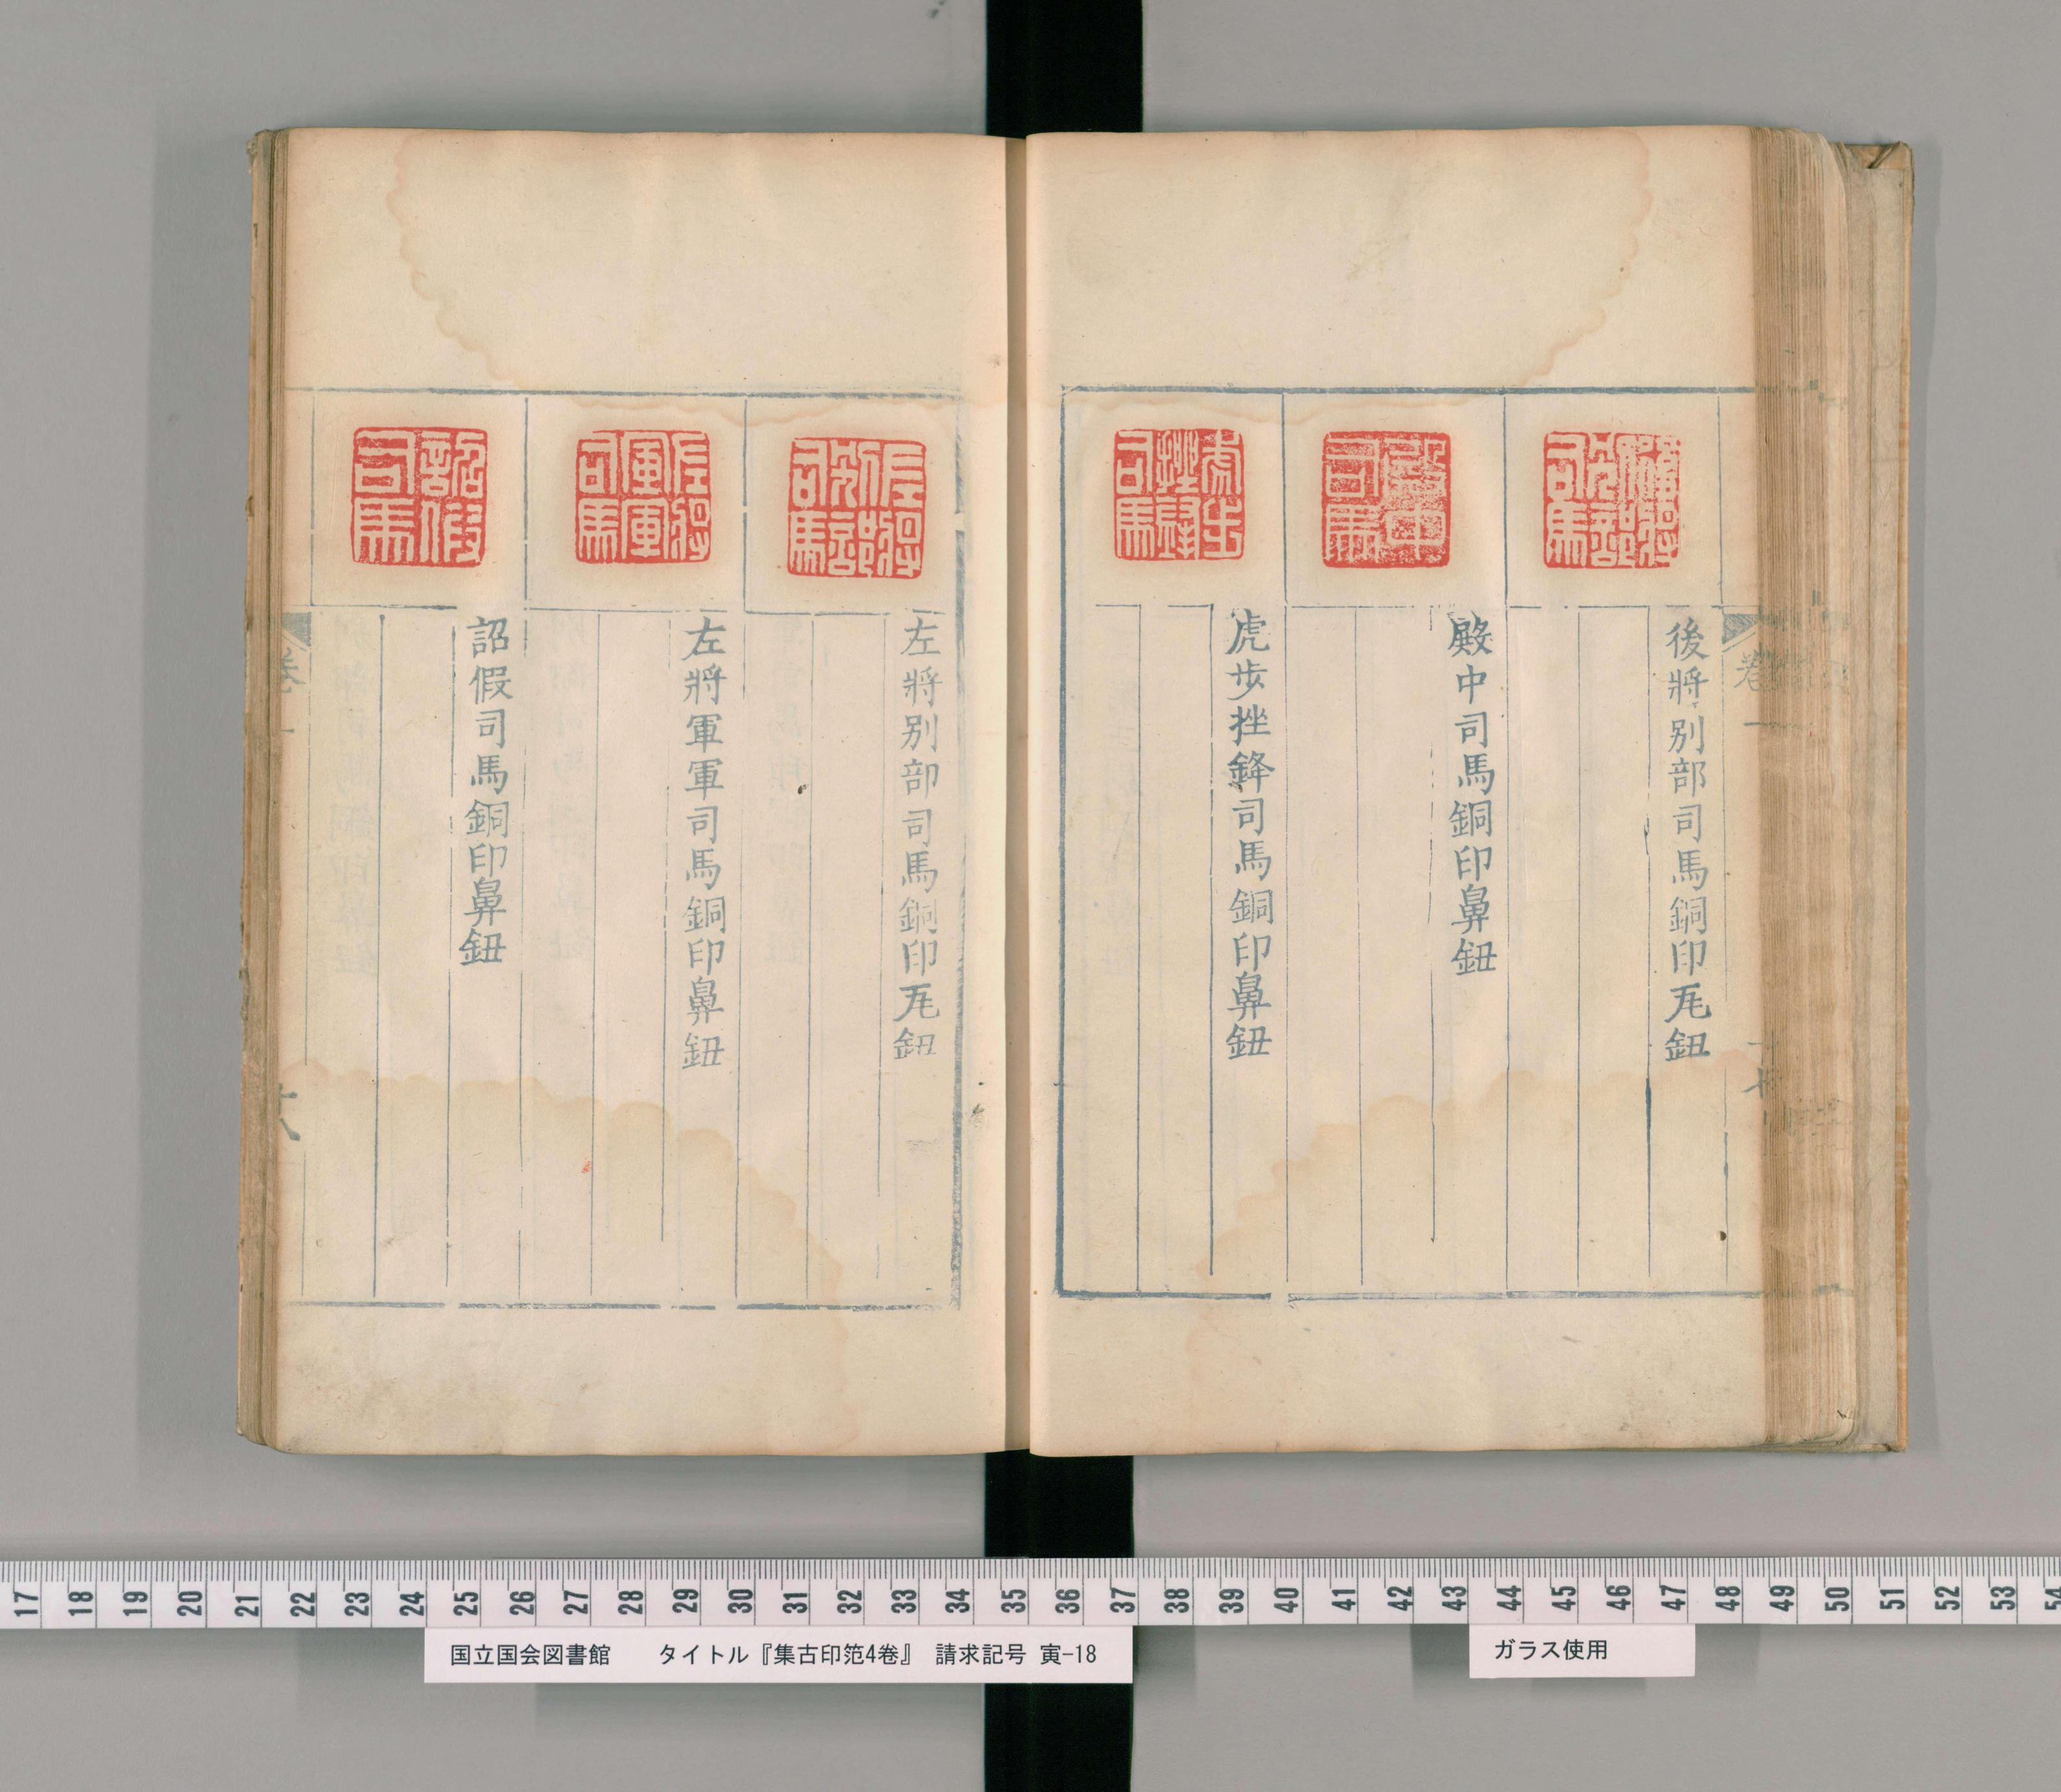 後將別部司馬
後將别部司馬銅印瓦鈕
殿中司馬
殿中司馬銅印鼻鈕
虎步挫鋒司馬
虎步挫鋒司馬銅印鼻鈕
左將別部司馬
左將别部司馬銅印瓦鈕
左將軍軍司馬
左將軍軍司馬銅印鼻鈕
詔假司馬
詔假司馬銅印鼻鈕
卷一
17 18 19 20 21 22 23 24 25 26 27 28 29 30 31 32 33 34 35 36 37 38 39 40 41 42 43 44 45 46 47 48 49 50 51 52 53 54
国立国会図書館 タイトル『集古印笵4卷』 請求記号 寅-18
ガラス使用